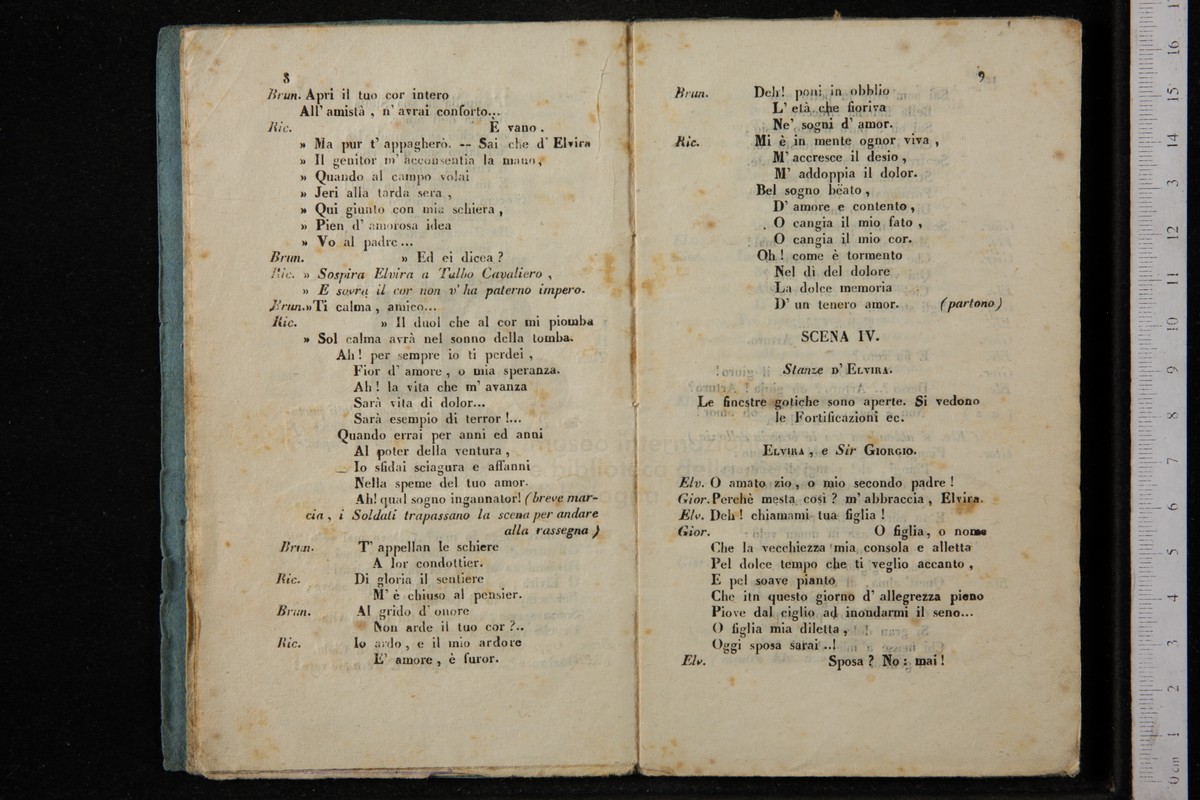 8
Brun. Apri il tuo cor intero
All' amistà , n' avrai conforto...
Ric. È vano .
» Ma pur t' appagherò. -- Sai che d' Elvira
» Il genitor m' acconsentia la mano,
» Quando al campo volai
» Jeri alla tarda sera ,
» Qui giunto con mia schiera ,
» Pien d' amorosa idea
» Vo al padre ...
Brun. » Ed ei dicea ?
Ric. » Sospira Elvira a Talbo Cavaliero ,
» E sovra il cor non v' ha paterno impero.
Brun.» Ti calma , amico...
Ric. » Il duol che al cor mi piomba
» Sol calma avrà nel sonno della tomba.
Ah ! per sempre io ti perdei ,
Fior d' amore , o mia speranza.
Ah ! la vita che m' avanza
Sarà vita di dolor...
Sarà esempio di terror !...
Quando errai per anni ed anni
Al poter della ventura ,
Io sfidai sciagura e affanni
Nella speme del tuo amor.
Ah! qual sogno ingannator! (breve mar-
cia , i Soldati trapassano la scena per andare
alla rassegna )
Brun. T' appellan le schiere
A lor condottier.
Ric. Di gloria il sentiere
M' è chiuso al pensier.
Brun. Al grido d' onore
Non arde il tuo cor ?..
Ric. Io ardo , e il mio ardore
E' amore , è furor.
9
Brun. Deh! poni in obblio
L' età che fioriva
Ne' sogni d' amor.
Ric. Mi è in mente ognor viva ,
M' accresce il desio ,
M' addoppia il dolor.
Bel sogno bëato ,
D' amore e contento ,
O cangia il mio fato ,
O cangia il mio cor.
Oh ! come è tormento
Nel dì del dolore
La dolce memoria
D' un tenero amor. (partono)
SCENA IV.
Stanze D' ELVIRA.
Le finestre gotiche sono aperte. Si vedono
le Fortificazioni ec.
ELVIRA , e Sir GIORGIO.
Elv. O amato zio , o mio secondo padre !
Gior. Perchè mesta così ? m' abbraccia , Elvira.
Elv. Deh ! chiamami tua figlia !
Gior. O figlia, o nome
Che la vecchiezza mia consola e alletta
Pel dolce tempo che ti veglio accanto ,
E pel soave pianto
Che itn questo giorno d' allegrezza pieno
Piove dal ciglio ad inondarmi il seno...
O figlia mia diletta ,
Oggi sposa sarai ..!
Elv. Sposa ? No : mai !